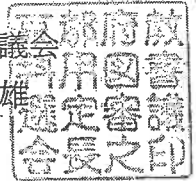 議会
雄
京都府教
科用図書
選定審議
会長之印